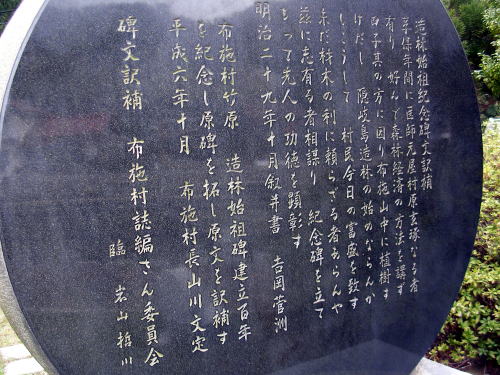 造林始祖紀念碑文訳補
享保年間に医師元屋村原玄琢なる者
有り 好んで森林経済の方法を講ず
白子其の方に困り布施山中に植樹す
けだし 隠岐島造林の始のならんか
しこうして 村民今日の富盛を致す
未だ林木の利に頼らざる者あらんや
茲に志有る者相謀り 紀念碑を立て
もって先人の功徳を顕彰す
明治二十九年十月叙并書 吉岡菅洲
布施村竹原 造林始祖碑建立百年
を紀念し原碑を拓し原文を訳補す
平成六年十月 布施村長山川文定
碑文訳補 布施村誌編さん委員会
臨 岩山哲川